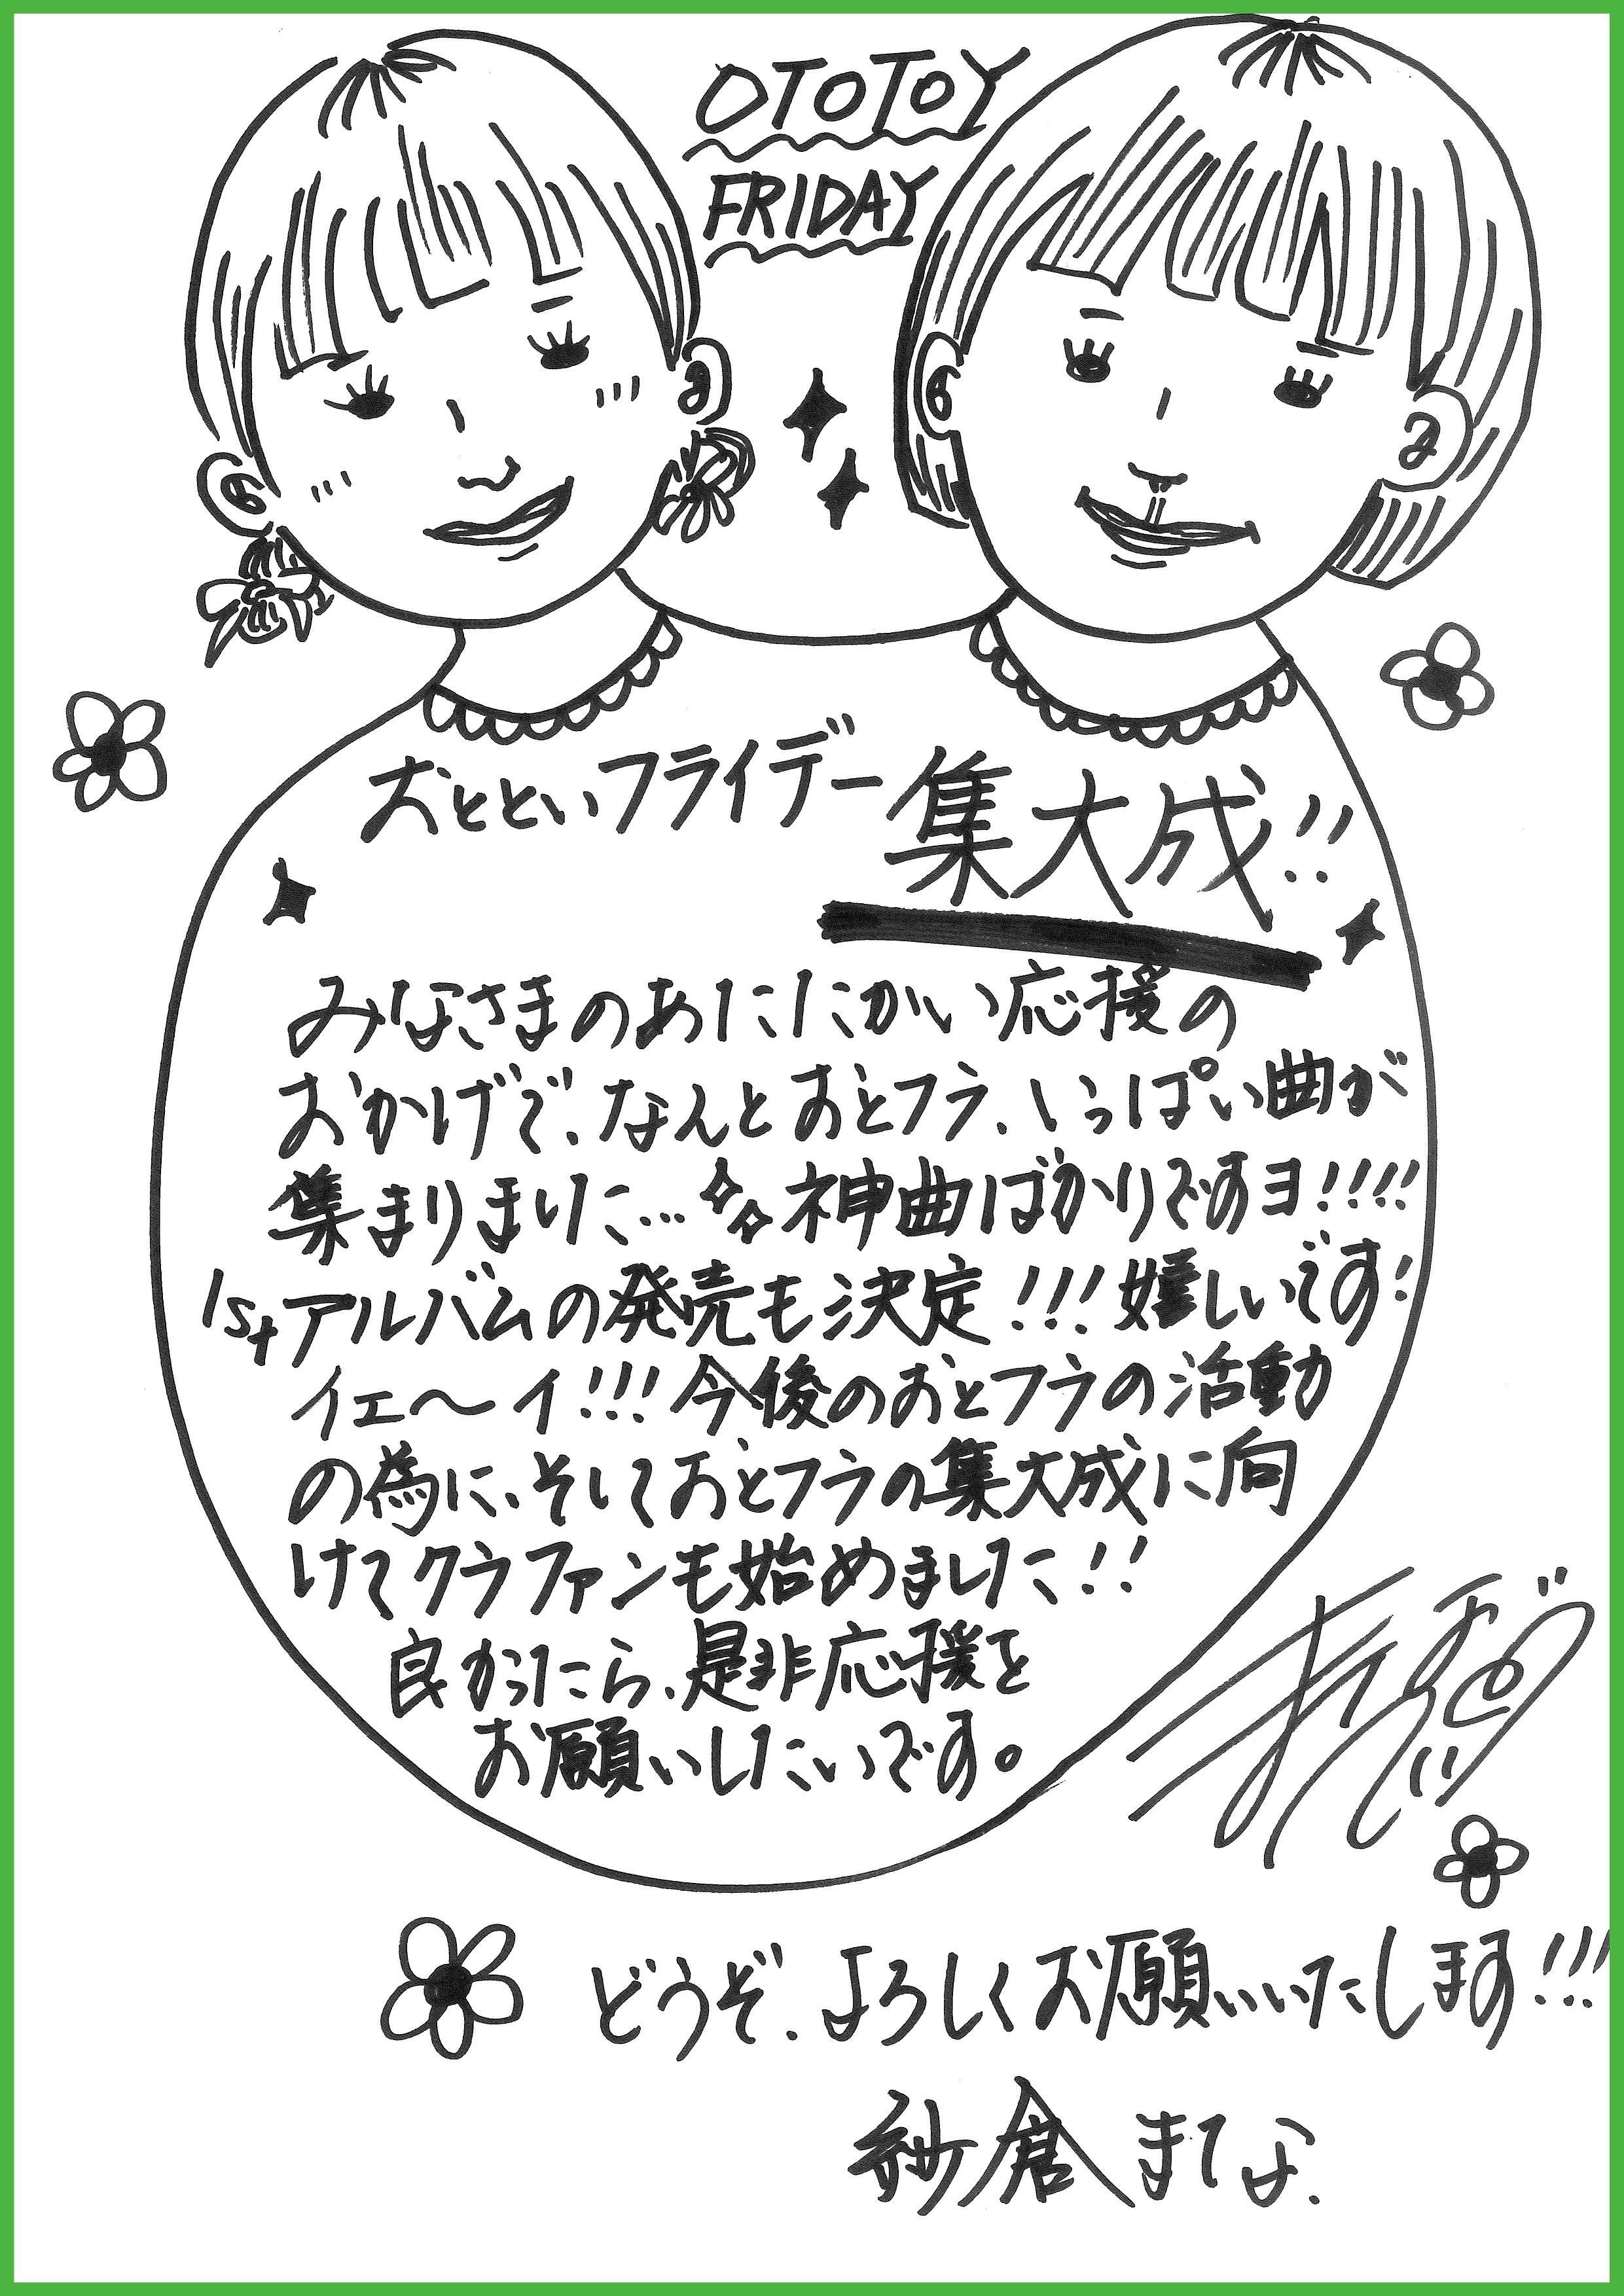 OTOTOY
FRIDAY
おとといフライデー集大成!!
みなさまのあたたかい応援の
おかげで、なんとおとフラ、いっぱい曲が
集まりました…神曲ばかりですヨ!!!!
1stアルバムの発売も決定!!!嬉しいです!
イェ〜イ!!!今後のおとフラの活動
の為に、そしておとフラの集大成に向
けてクラファンも始めました!!
良かったら、是非応援を
お願いしたいです。
どうぞ、よろしくお願いいたします!!!
紗倉まな.